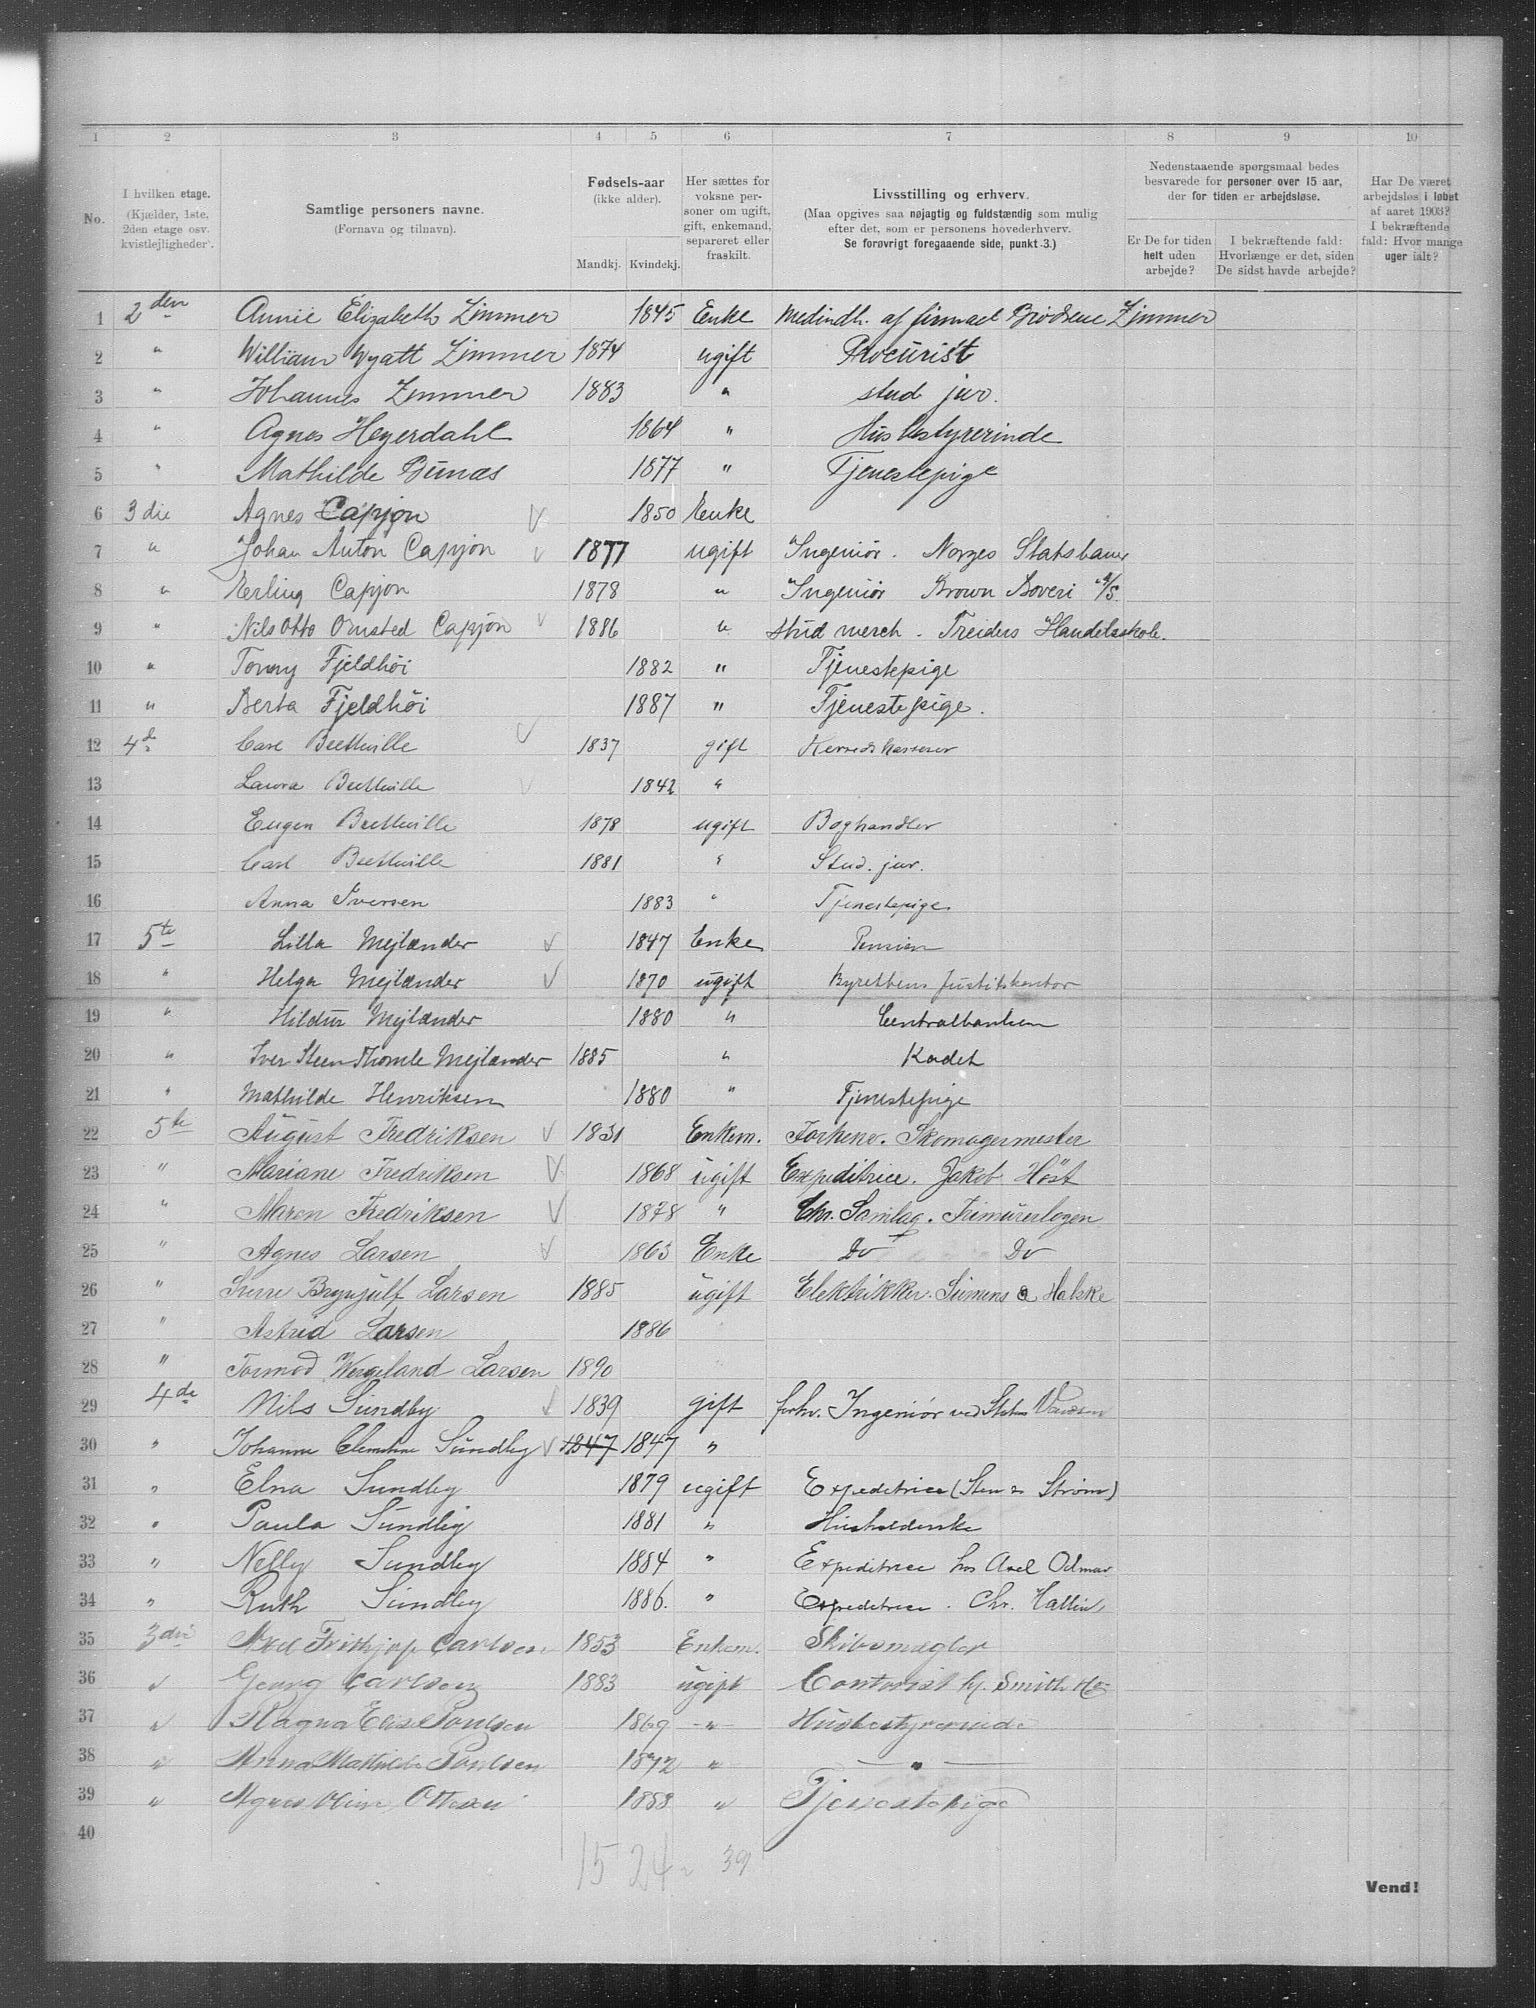 1 2 3 4 5 6 7 8 9 10
No.
I hvilken etage.
(Kjælder, 1ste,
2den etage osv.
kvistlejligheder).
Samtlige personers navne.
(Fornavn og tilnavn).
Fødsels-aar
(ikke alder).
Mandkj. Kvindekj.
Her sættes for
voksne per-
soner om ugift,
gift, enkemand,
separeret eller
fraskilt.
Livsstilling og erhverv.
(Maa opgives saa nøjagtig og fuldstændig som mulig
efter det, som er personens hovederhverv.
Se forøvrigt foregaaende side, punkt 3.)
Nedenstaaende spørgsmaal bedes
besvarede for personer over 15 aar,
der for tiden er arbejdsløse.
Er De for tiden
helt uden
arbejde?
I bekræftende fald:
Hvorlænge er det, siden
De sidst havde arbejde?
Har De været
arbejdsløs i løbet
af aaret 1903?
I bekræftende
fald: Hvor mange
uger ialt?
1 2den Annie Elizabeth Zimmer 1845 Enke Medindh. af firmaet Brødrene Zimmer
2 " William Wyatt Zimmer 1874 ugift Procurist
3 " Johannes Zimmer 1883 " stud jur.
4 " Agnes Heyerdahl 1864 " Husbestyrerinde
5 " Mathilde Bunæs 1877 " Tjenestepige
6 3die Agnes Capjon 1850 Enke
7 " Johan Anton Capjon 1877 ugift Ingeniør. Norges Statsbaner
8 " Erling Capjon 1878 " Ingeniør Brown Boveri A/S.
9 " Nils Otto Ønsted Capjon 1886 " stud merch. Treiders Handelsskole.
10 " Tonny Fjeldhöi 1882 " Tjenestepige
11 " Berta Fjeldhöi 1887 " Tjenestepige.
12 4de Carl Bretteville 1837 gift Herredskasserer
13 Laura Bretteville 1842 "
14 Eugen Bretteville 1878 ugift Boghandler
15 Carl Bretteville 1881 " Stud. jur.
16 Anna Iversen 1883 " Tjenestepige
17 5te Lilla Mejlænder 1847 Enke Pension
18 " Helga Mejlænder 1870 ugift Byrettens Justitskontor
19 " Hildur Mejlænder 1880 " Centralbanken
20 " Iver Steen Thomle Mejlænder 1885 " Kadet
21 " Mathilde Henriksen 1880 " Tjenestepige
22 5te August Fredriksen 1831 Enkem. Forhenv. Skomagermester
23 " Mariane Fredriksen 1868 ugift Expeditrice. Jakob Höst
24 " Maren Fredriksen 1878 " Chr. Samlag. Frimurerlogen
25 " Agnes Larsen 1863 Enke Do Do
26 " Sverre Brynjulf Larsen 1885 ugift Elektrikker. Siemens & Halske
27 " Astrid Larsen 1886
28 " Tormod Wergeland Larsen 1890
29 4de Nils Sundby 1839 gift forhv. Ingeniør ved Statens
30 " Johanne Clementine Sundby 1847 1847 "
31 " Elna Sundby 1879 ugift Expeditrice (Steen & Strøm)
32 " Paula Sundby 1881 "
33 " Nelly Sundby 1884 " Expeditrice hos Axel
34 " Ruth Sundby 1886. " Expeditrice. Chr.
35 3die Axel Frithjof Carlsen 1853 Enkem. Skibsmægler
36 " Georg Carlsen 1883 ugift Contorist hj. Smith
37 " Magna Elise Poulsen 1869 " Husbestyrerinde
38 " Anna Mathilde Poulsen 1872 " "
39 " Agnes Oline Ottesen 1883 " Tjenestepige
40
15 24 39
Vend!